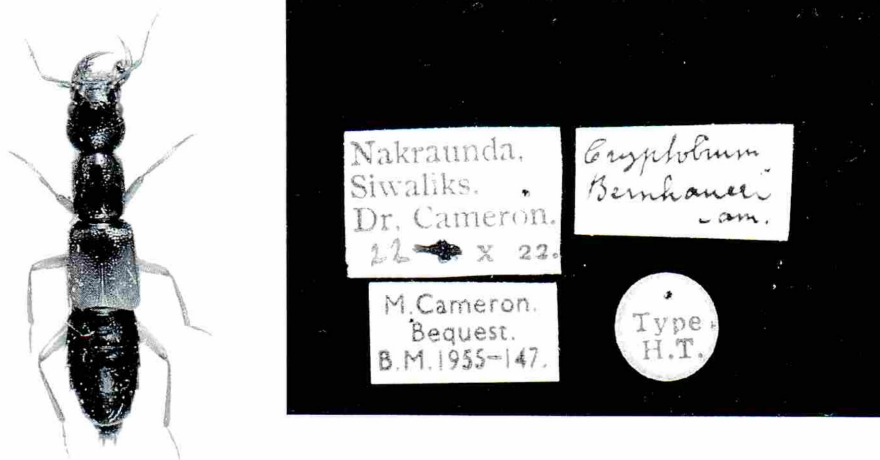 Nakraunda,
Siwaliks.
Dr. Cameron.
22 X 22.
Cryptobium
Bernhaueri
Cam.
M. Cameron.
Bequest.
B.M. 1955-147.
Type
H.T.